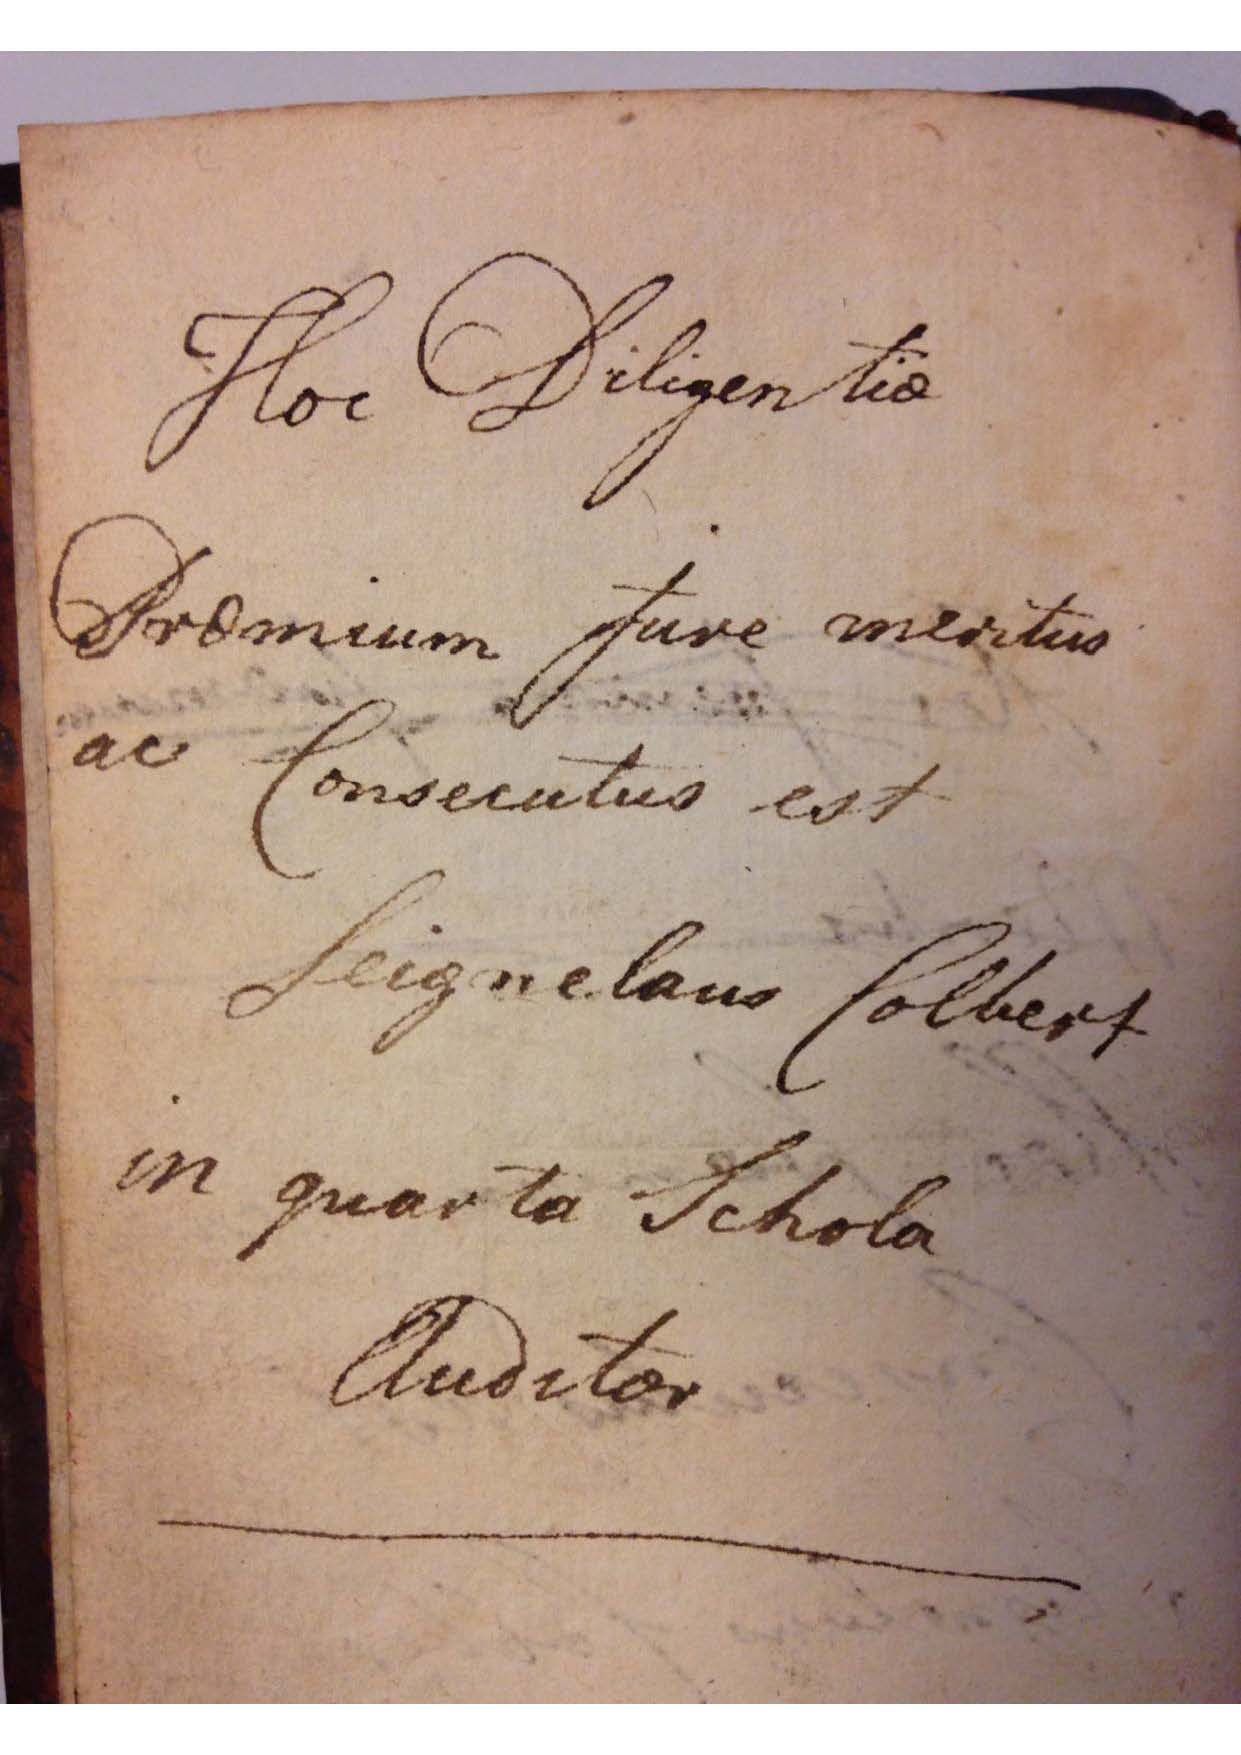 Hoc Diligentiæ
Præmium jure meritus
ac Consecutus est
Seignelaus Colbert
in quarta Schola
Auditor